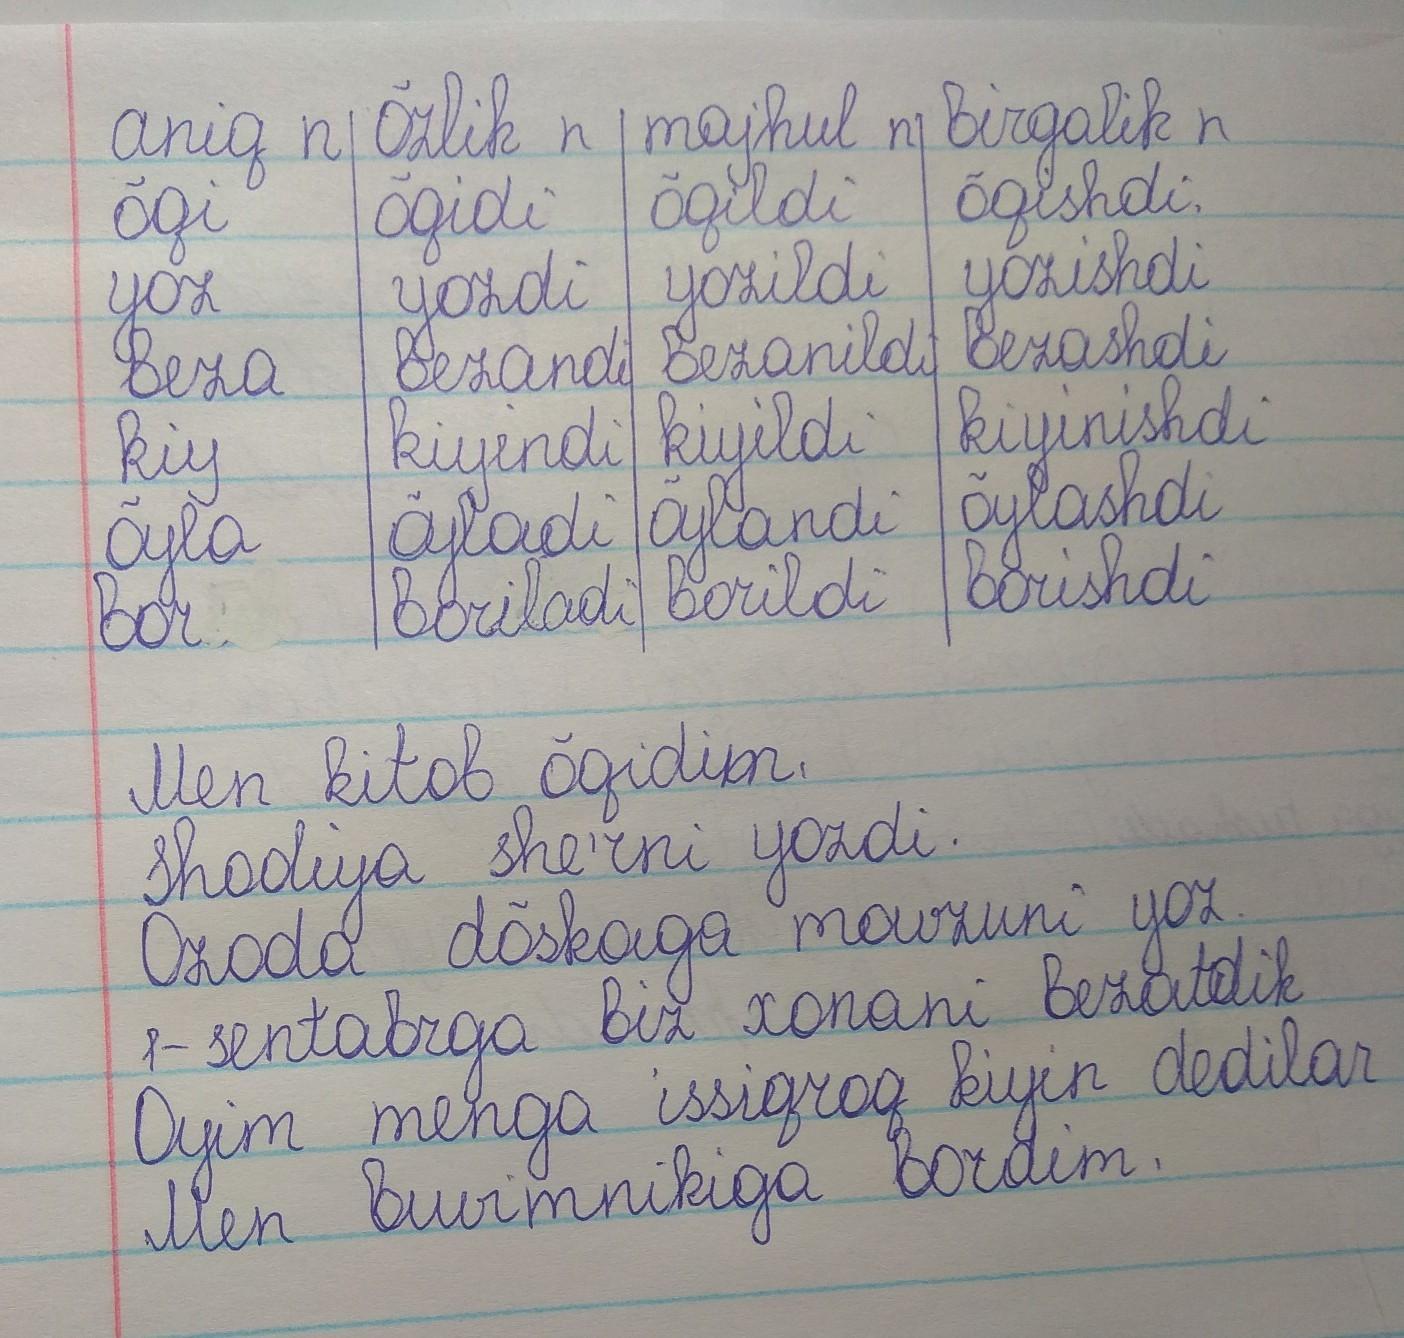 aniq n | õzlik n | majhul n | birgalik n
õqi | õqidi | õqildi | õqishdi.
yoz | yozdi | yozildi | yozishdi
beza | bezandi | bezanildi | bezashdi
kiy | kiyindi | kiyildi | kiyinishdi
õyla | õyladi | õylandi | õylashdi
bor | boriladi | borildi | borishdi
Men kitob õqidim.
Shodiya she'rni yozdi.
Ozoda dõskaga mavzuni yoz.
1-sentabrga biz xonani bezatdik
Oyim menga issiqroq kiyin dedilar
Men buvimnikiga bordim.